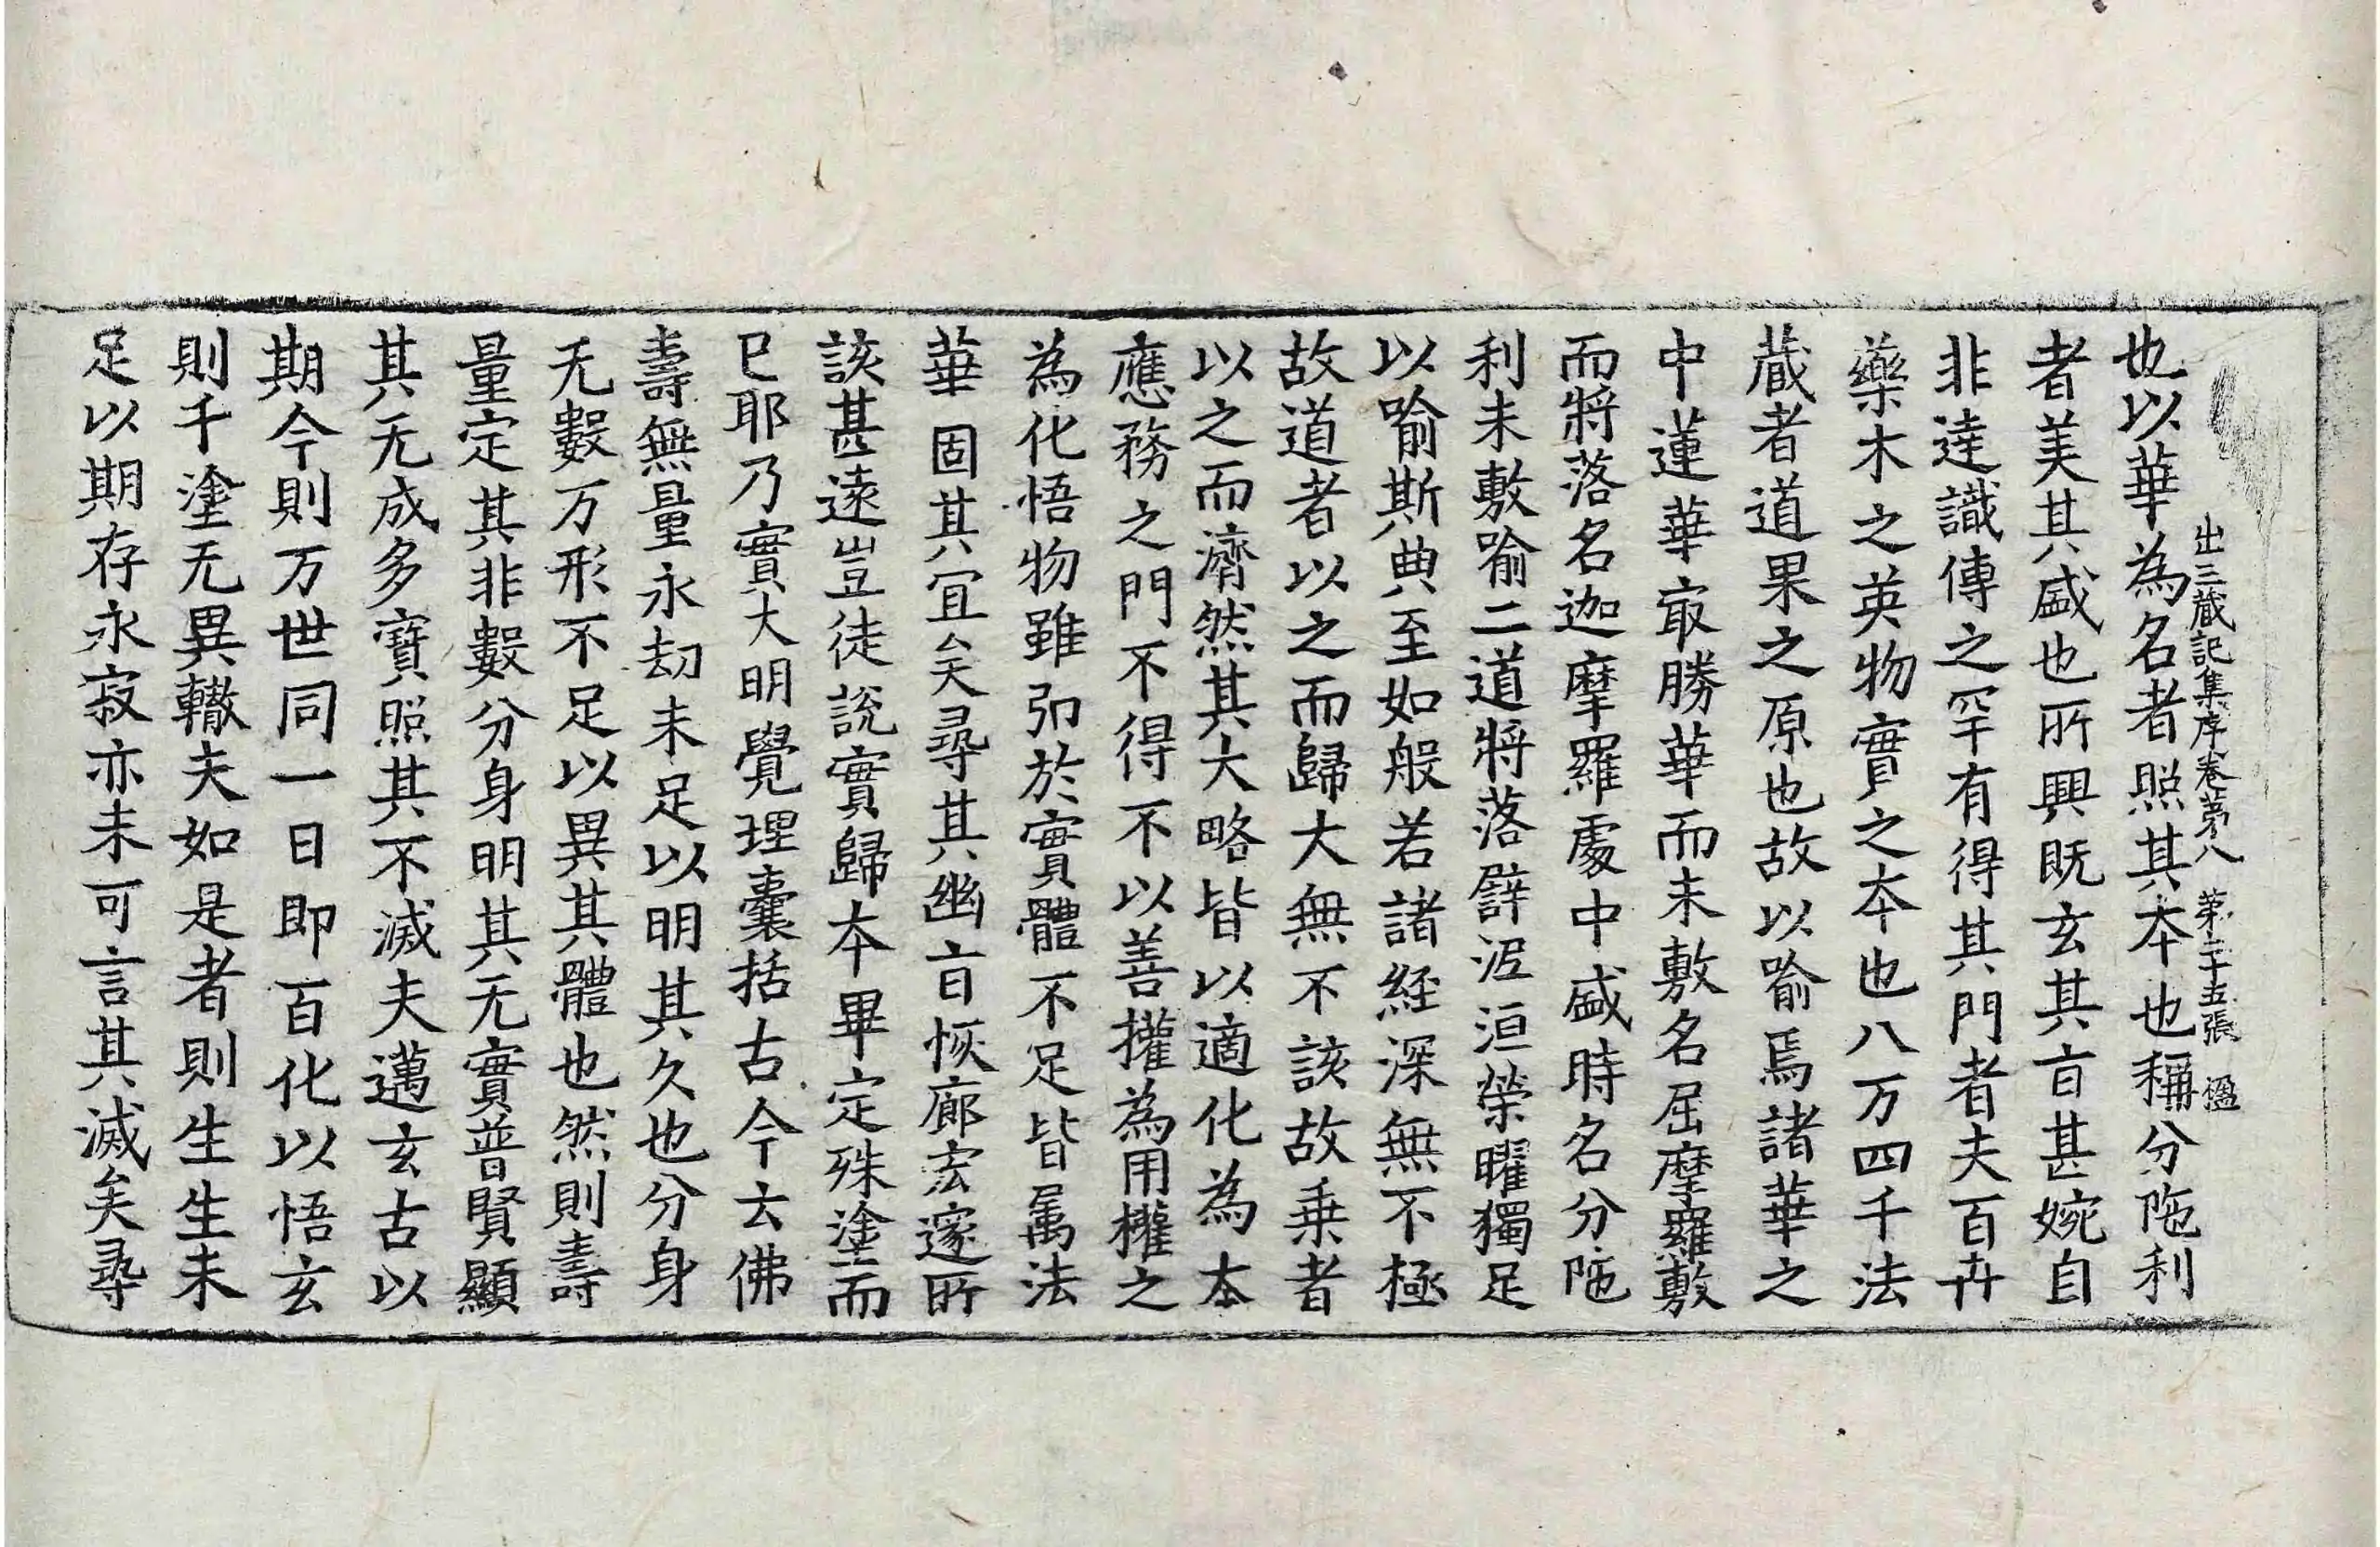 出三蔵記集序卷第八 第二十五張 楹
也以華為名者照其夲也稱分陁利
者美其盛也所興既玄其㫖甚婉自
非逹識傳之罕有得其門者夫百卉
藥木之英物實之夲也八万四千法
蔵者道果之原也故以喻焉諸華之
中蓮華㝡勝華而未敷名屈摩羅敷
而將落名迦摩羅處中盛時名分陁
利未敷喻二道將落譬泥洹榮曜獨足
以喻斯典至如般若諸経深無不極
故道者以之而歸大無不該故乗者
以之而濟然其大略皆以適化為本
應務之門不得不以善權為用權之
為化悟物雖弘於實體不足皆属法
華固其冝矣尋其幽㫖恢廊宏邃所
該甚遠豈徒說實歸夲畢定殊塗而
已耶乃實大明覺理囊括古今云佛
壽無量永刧未足以明其久也分身
无數万形不足以異其體也然則壽
量定其非數分身明其无實普賢顯
其无成多寶照其不滅夫邁玄古以
期今則万世同一日即百化以悟玄
則千塗无異轍夫如是者則生生未
足以期存永寂亦未可言其滅矣尋